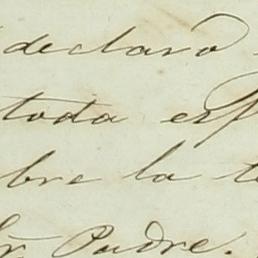 declaró
toda esp
bre la t
Sr Padre.